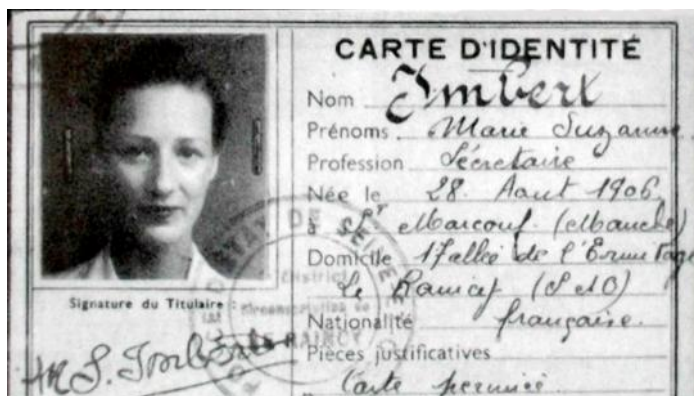 CARTE D'IDENTITÉ
Nom Imbert
Prénoms Marie Suzanne
Profession Sécretaire
Née le 28 Aout 1906
à St Marcouf (Manche)
Domicile 17 allée de l'Ermitage
Le Raincy (S et O)
Nationalité française.
Pièces justificatives
Carte périmée
Signature du Titulaire :
M S. Imbert
ÉTAT DE SEINE
District
Circonscription de
LE RAINCY